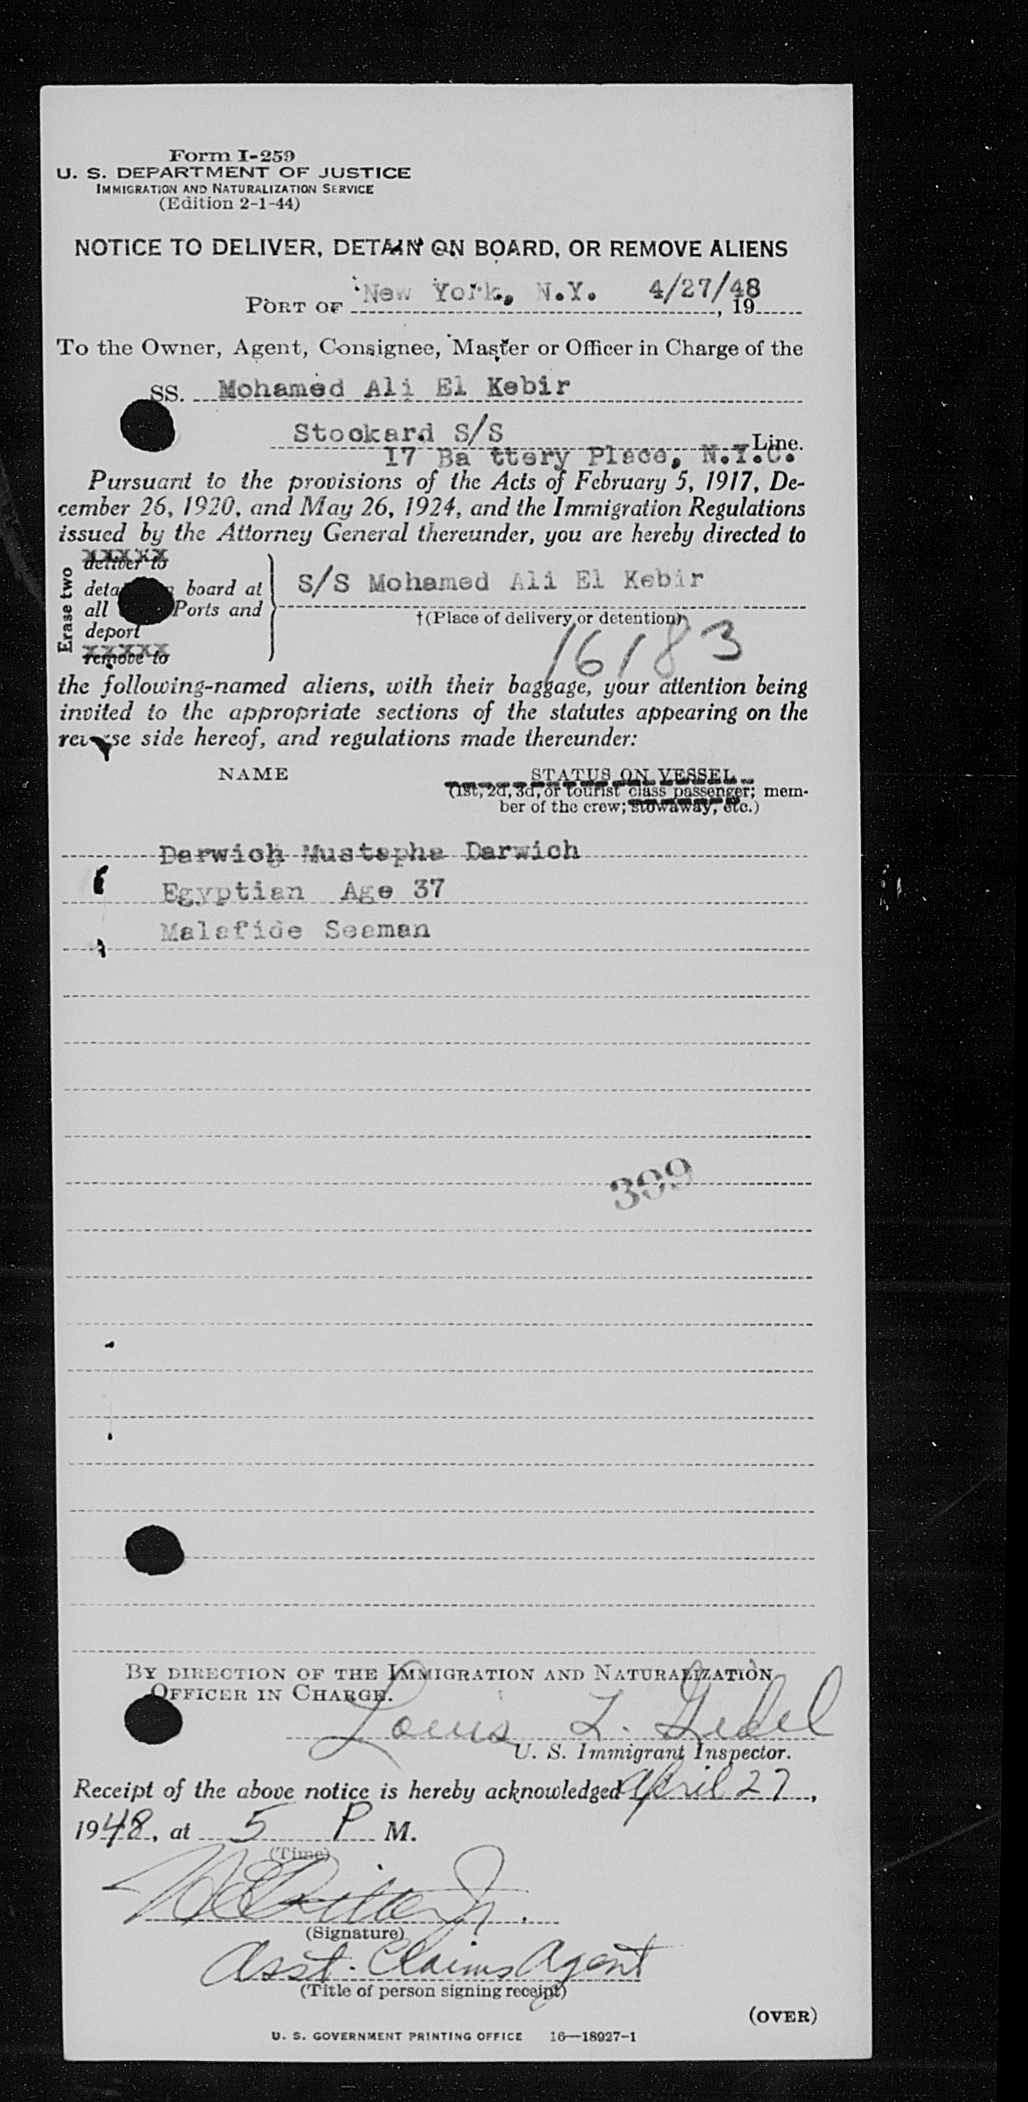 Form I-259
U. S. DEPARTMENT OF JUSTICE
IMMIGRATION AND NATURALIZATION SERVICE
(Edition 2-1-44)
NOTICE TO DELIVER, DETAIN ON BOARD, OR REMOVE ALIENS
PORT OF New York, N.Y. 4/27/48, 19
To the Owner, Agent, Consignee, Master or Officer in Charge of the
SS. Mohamed Ali El Kebir
Stockard S/S Line.
17 Ba ttery Place, N.Y.C.
Pursuant to the provisions of the Acts of February 5, 1917, De-
cember 26, 1920, and May 26, 1924, and the Immigration Regulations
issued by the Attorney General thereunder, you are hereby directed to
Erase two
deliver to
board at
all Ports and
deport
remove to
S/S Mohamed Ali El Kebir
†(Place of delivery or detention)
16183
the following-named aliens, with their baggage, your attention being
invited to the appropriate sections of the statutes appearing on the
reverse side hereof, and regulations made thereunder:
NAME STATUS ON VESSEL
(1st, 2d, 3d, or tourist class passenger; mem-
ber of the crew; stowaway, etc.)
Darwich Mustapha Darwich
Egyptian Age 37
Malafide Seaman
399
BY DIRECTION OF THE IMMIGRATION AND NATURALIZATION
OFFICER IN CHARGE.
Louis L.
U. S. Immigrant Inspector.
Receipt of the above notice is hereby acknowledged April 27,
1948, at 5 P M.
(Time)
Jr.
(Signature)
Asst. Claims Agent
(Title of person signing receipt)
(OVER)
U. S. GOVERNMENT PRINTING OFFICE 16—18927-1